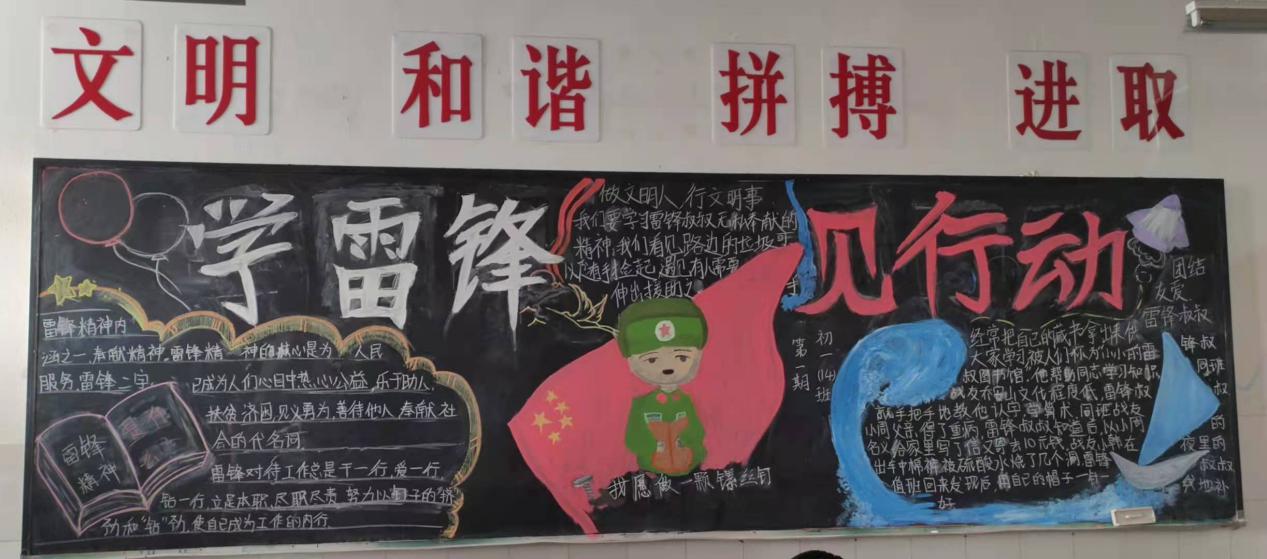 文明 和谐 拼搏 进取
学雷锋 见行动
雷锋精神内
涵之一,奉献精神,雷锋精神的核心是为人民
服务,雷锋二字已成为人们心目中热心公益,乐于助人,
扶贫济困,见义勇为,善待他人,奉献社
会的代名词
雷锋对待工作总是干一行,爱一行
钻一行,立足本职,尽职尽责,努力以钉子的锲
劲和"钻"劲,使自己成为工作的内行
雷锋
精神
做文明人,行文明事
我们要学习雷锋叔叔无私奉献的
精神,我们看见路边的垃圾可
以弯腰拾起,遇见有人需要
伸出援助之手
我愿做一颗螺丝钉
初一(14)班
第一期
团结
友爱
雷锋叔叔
经常把自己的藏书拿出来供
大家学习,被人们称为小小的雷锋叔
叔图书馆,他帮助同志学习知识,同班
战友乔山文化程度低,雷锋叔叔
就手把手地教他认字,学算术,同班战友的
小周父亲得了重病,雷锋叔叔知道后,以小周的
名义给家里写了信,又寄去10元钱,战友小韩在夜里
出车中棉裤被硫酸水烧了几个洞,雷锋叔叔
值班回来发现后,用自己的帽子一针一线地补
好